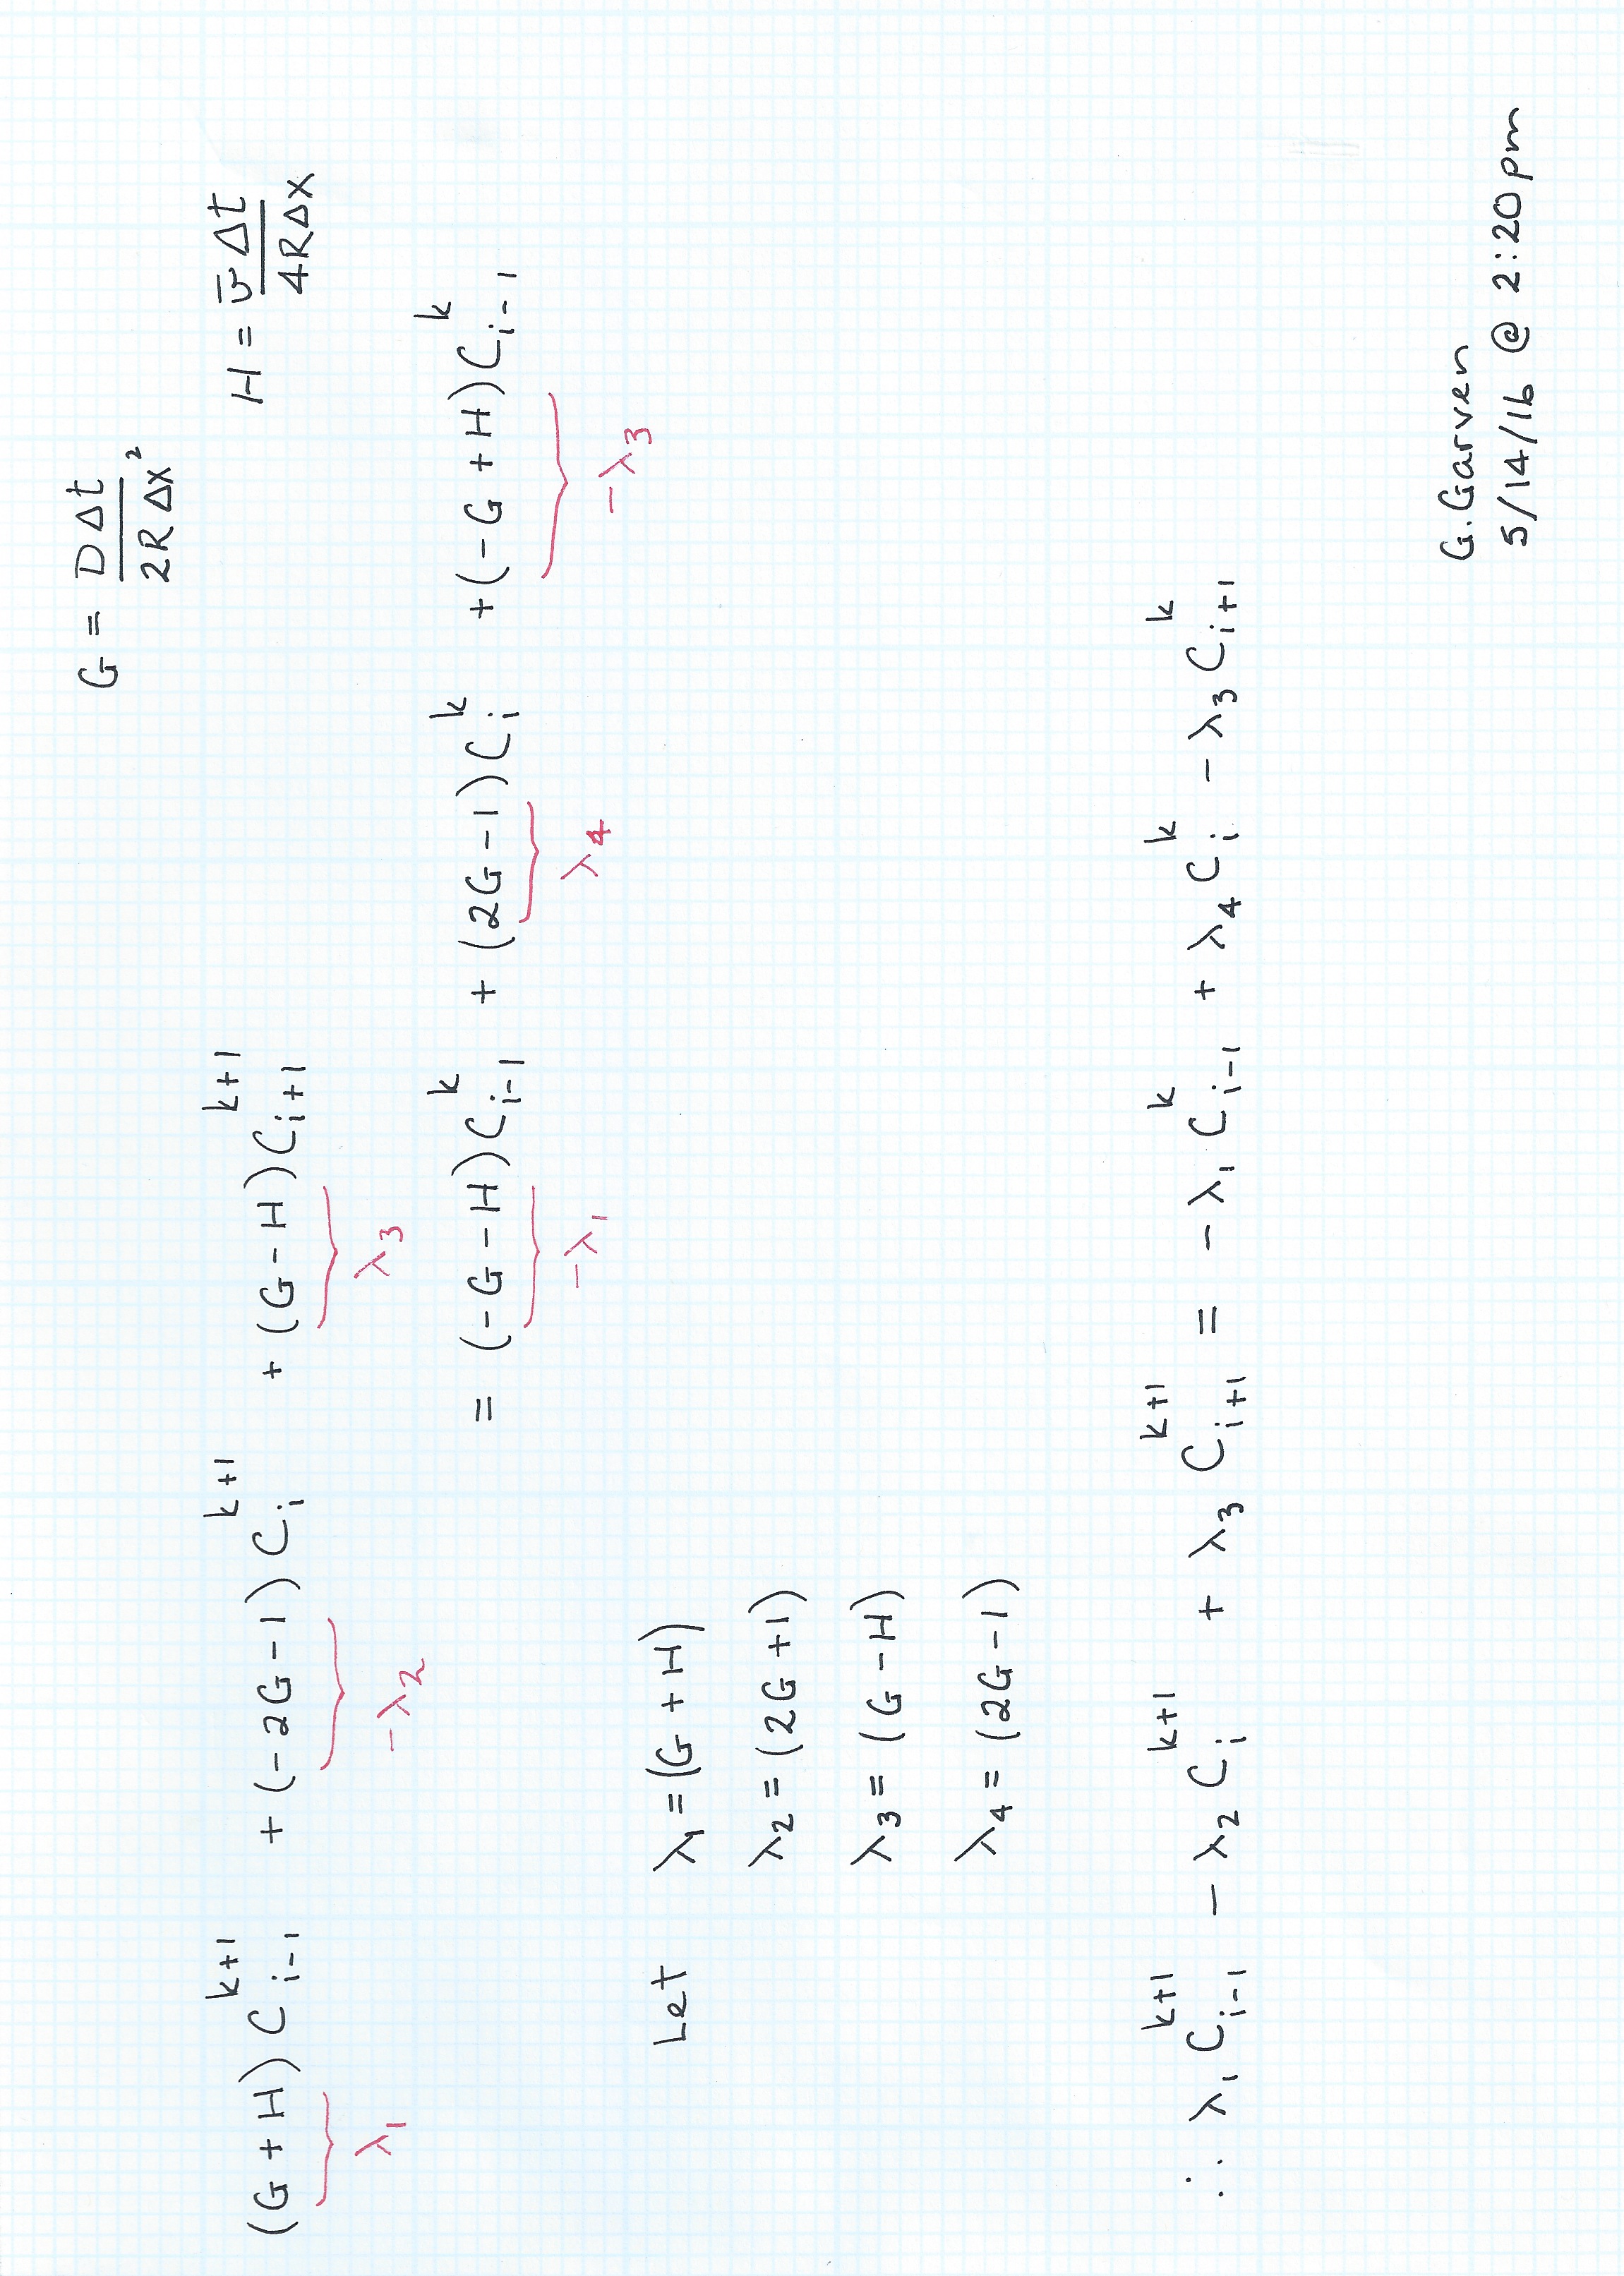 G = D Δt / 2R Δx²
H = v̄ Δt / 4R Δx
(G + H) C_{i-1}^{k+1} + (-2G - 1) C_i^{k+1} + (G - H) C_{i+1}^{k+1}
λ₁ -λ₂ λ₃
= (-G - H) C_{i-1}^k + (2G - 1) C_i^k + (-G + H) C_{i-1}^k
-λ₁ λ₄ -λ₃
Let λ₁ = (G + H)
λ₂ = (2G + 1)
λ₃ = (G - H)
λ₄ = (2G - 1)
∴ λ₁ C_{i-1}^{k+1} - λ₂ C_i^{k+1} + λ₃ C_{i+1}^{k+1} = -λ₁ C_{i-1}^k + λ₄ C_i^k - λ₃ C_{i+1}^k
G. Garven
5/14/16 @ 2:20pm